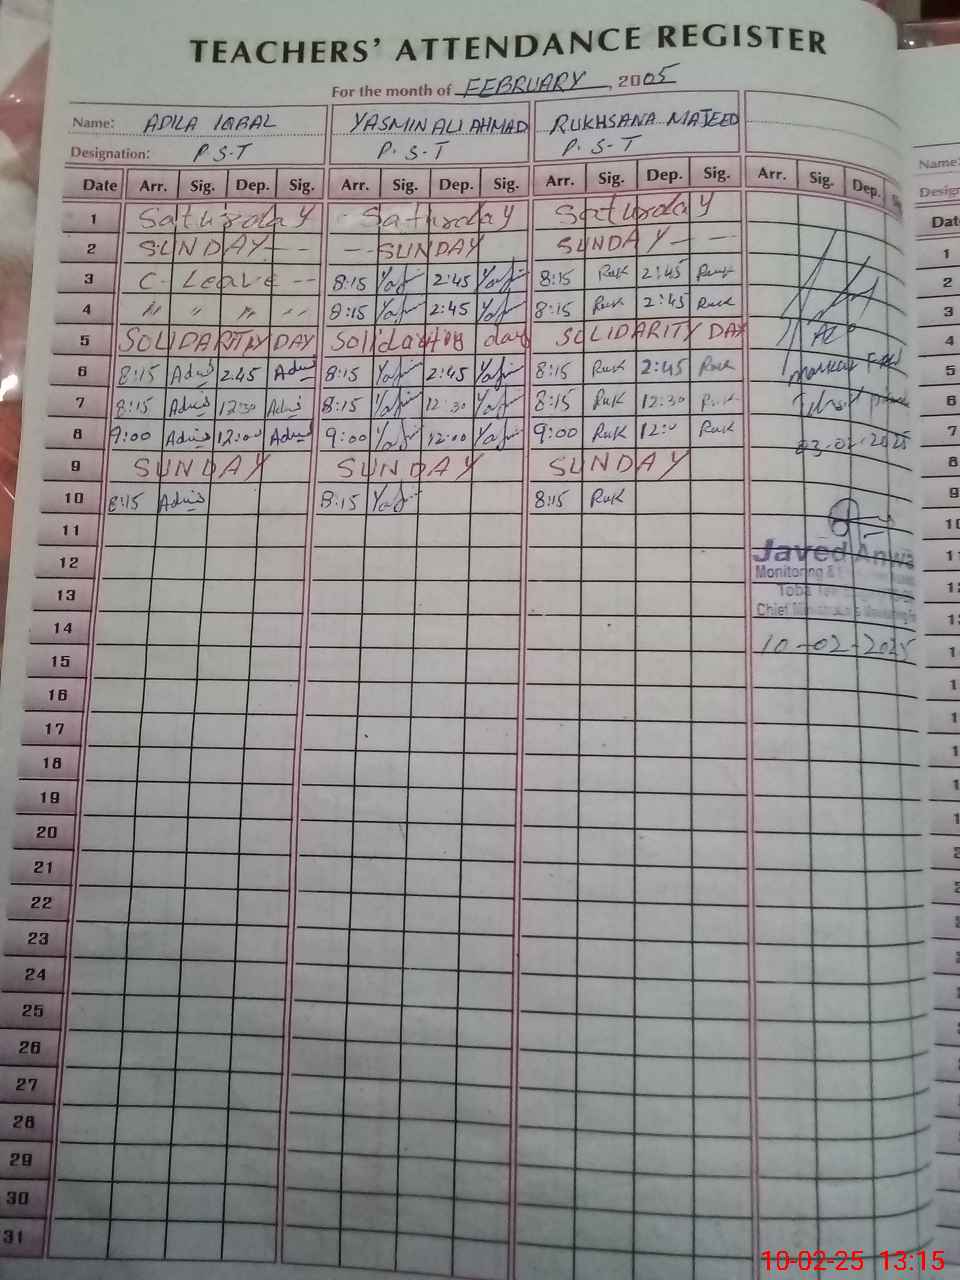 TEACHERS' ATTENDANCE REGISTER
For the month of FEBRUARY, 2005
Name: ADILA IQBAL YASMIN ALI AHMAD RUKHSANA MAJEED
Designation: P.S.T P.S.T P.S.T
Date Arr. Sig. Dep. Sig. Arr. Sig. Dep. Sig. Arr. Sig. Dep. Sig. Arr. Sig. Dep.
1 Saturday Saturday Saturday
2 SUNDAY-- --SUNDAY SUNDAY--
3 C-Leave-- 8:15 2:45 8:15 Ruk 2:45 Ruk
4 〃 〃 〃 〃 8:15 2:45 8:15 Ruk 2:45 Ruk
5 SOLIDARITY DAY Solidarity day SOLIDARITY DAY AEO
6 8:15 2:45 8:15 2:45 8:15 Ruk 2:45 Ruk
7 8:15 12:30 8:15 12:30 8:15 Ruk 12:30 Ruk
8 9:00 12:00 9:00 12:00 9:00 Ruk 12:0 Ruk
03-02-2025
9 SUNDAY SUNDAY SUNDAY
10 8:15 8:15 8:15 Ruk
11
12 Javed Anwa
Monitoring &
13 Toba
Chief
14
10-02-2025
15
16
17
18
19
20
21
22
23
24
25
26
27
28
29
30
31
Name:
Date
1
2
3
4
5
6
7
8
9
10
11
10-02-25 13:15